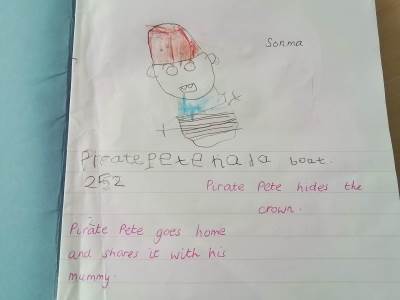 Sonma
Pirate Pete had a boat.
252
Pirate Pete hides the
crown.
Pirate Pete goes home
and shares it with his
mummy.